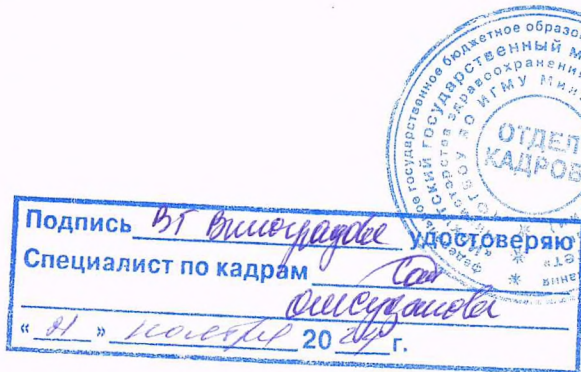 ное государственное бюджетное образо
ский государственный м
министерства здравоохранения
ФГБОУ ВО ИГМУ Мин
ОТДЕЛ
КАДРОВ
Подпись ВГ Виноградова удостоверяю
Специалист по кадрам
« 21 » ноября 20 24 г.